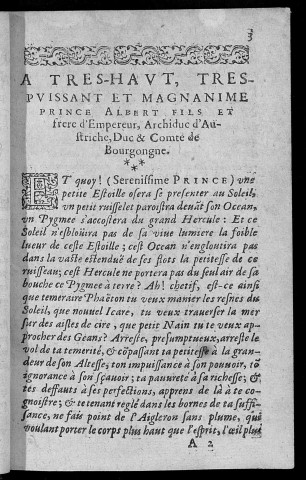 3
A TRES-HAVT, TRES-
PVISSANT ET MAGNANIME
PRINCE ALBERT FILS ET
frere d'Empereur, Archiduc d'Au-
striche, Duc & Comte de
Bourgongne.
***
ET quoy! (Serenissime PRINCE) vne
petite Estoille osera se presenter au Soleil,
vn petit ruisselet paroistra deuāt son Ocean,
vn Pygmee s'accostera du grand Hercule: Et ce
Soleil n'esbloüira pas de sa viue lumiere la foible
lueur de ceste Estoille; cest Ocean n'engloutira pas
dans la vaste estenduë de ses flots la petitesse de ce
ruisseau; cest Hercule ne portera pas du seul air de sa
bouche ce Pygmee à terre? Ah! chetif, est-ce ainsi
que temeraire Phaëton tu veux manier les resnes du
Soleil, que nouuel Icare, tu veux trauerser la mer
sur des aisles de cire, que petit Nain tu te veux ap-
procher des Geans? Arreste, presumptueux, arreste le
vol de ta temerité, & cōpassant ta petitesse à la gran-
deur de son Altesse, ton impuissance à son pouuoir, tō
ignorance à son sçauoir; ta pauureté à sa richesse; &
tes deffauts à ses perfections, apprens de là à te co-
gnoistre; & te tenant reglé dans les bornes de ta suffi-
sance, ne faie point de l'Aigleron sans plume, qui
voulant porter le corps plus haut que l'esprit, l'œil plus
A 2